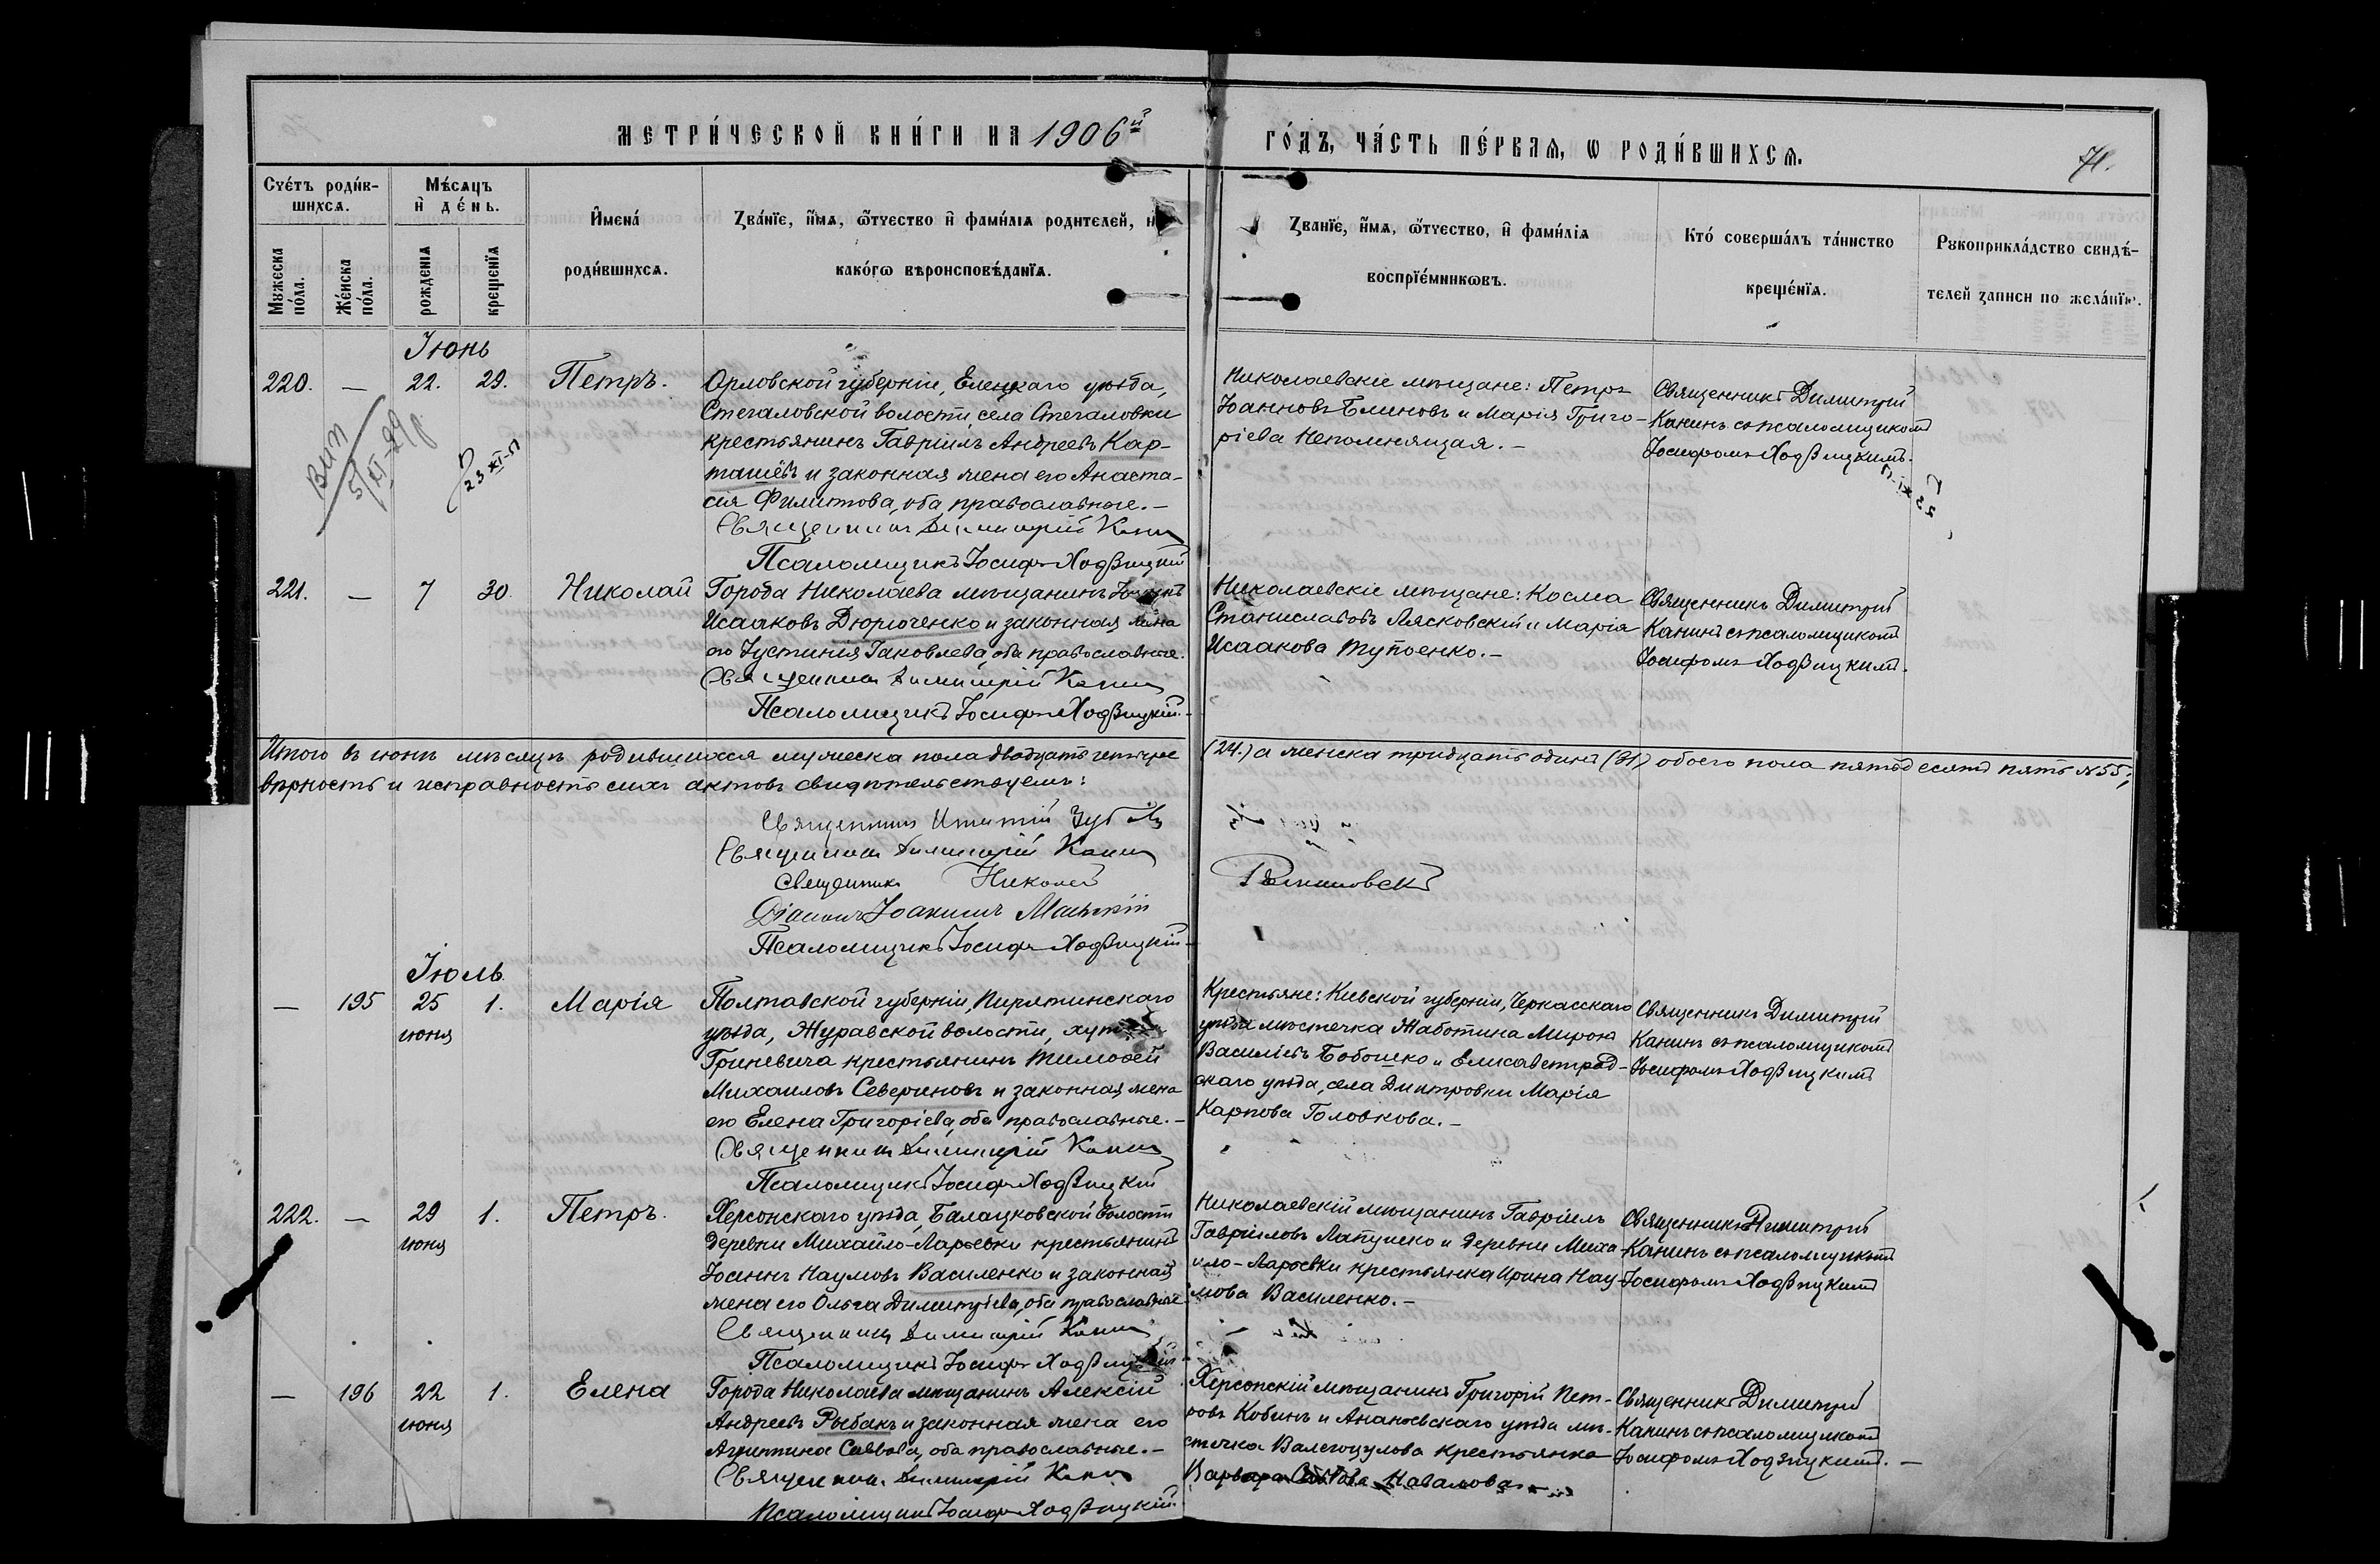 МЕТРИ́ЧЕСКОЙ КНИ́ГИ НА 1906й ГО́ДЪ, ЧА́СТЬ ПЕ́РВАѦ, Ѡ РОДИ́ВШИХСѦ.
71.
Счетъ роди́вшихсѧ.
Мꙋжеска по́ла.
Же́нска по́ла.
Мѣ́сѧцъ и҆ де́нь.
рожденїѧ
крещенїѧ
И҆мена́ роди́вшихсѧ.
Зва́нїе, и҆́мѧ, ѿчество и҆ фами́лїѧ родителей, и҆
како́гѡ вѣроисповѣ́данїѧ.
Званїе, и҆́мѧ, ѿчество, и҆ фами́лїѧ
воспрїе́мникѡвъ.
Кто́ соверша́лъ та́инство
креще́нїѧ.
Рꙋкоприкла́дство свидѣ́-
телей записи по жела́нїю.
Іюнь
220. — 22. 29. Петръ.
Орловской губерніи, Елецкаго уѣзда,
Стегаловской волости, села Стегаловки
крестьянинъ Гавріилъ Андреевъ Кар-
ташёвъ и законная жена его Анаста-
сія Филиппова, оба православные.—
Священникъ Димитрій Канин
Псаломщикъ Іосифъ Ходзицкій
Николаевскіе мѣщане: Петръ
Іоанновъ Блиновъ и Марія Григо-
ріева Непомнящая.—
Священникъ Димитрій
Канинъ съ псаломщикомъ
Іосифомъ Ходзицкимъ.
5/XI-29
23 XI-51
221. — 7 30. Николай
Города Николаева мѣщанинъ
Исааковъ Дюрюченко и законная жена
его Іустинія Іаковлева, оба православные.
Священникъ Димитрій Канин
Псаломщикъ Іосифъ Ходзицкій.
Николаевскіе мѣщане: Косма
Станиславовъ Лясковскій и Марія
Исаакова Тупоенко.—
Священникъ Димитрій
Канинъ съ псаломщикомъ
Іосифомъ Ходзицкимъ.
Итого въ іюнѣ мѣсяцѣ родившихся мужеска пола двадцать четыре (24.) а женска тридцать одинъ (31) обоего пола пятьдесятъ пять № 55;
вѣрность и исправность сихъ актовъ свидѣтельствуемъ:
Священникъ
Священникъ Димитрій Канин
Священникъ Николай
Діаконъ Іоакимъ
Псаломщикъ Іосифъ Ходзицкій
Іюль
— 195 25 іюня 1. Марія
Полтавской губерніи, Пирятинскаго
уѣзда, Журавской волости,
Гриневича крестьянинъ Тимоѳей
Михаиловъ Севериновъ и законная жена
его Елена Григоріева, оба православные.—
Священникъ Димитрій Канин
Псаломщикъ Іосифъ Ходзицкій
Крестьяне: Кіевской губерніи, Черкасскаго
уѣзда мѣстечка Жаботина Миронъ
Василіевъ Бобошко и Елисаветград-
скаго уѣзда, села Димтровки Марія
Карпова Головкова.—
Священникъ Димитрій
Канинъ съ псаломщикомъ
Іосифомъ Ходзицкимъ
222. — 29 іюня 1. Петръ.
Херсонскаго уѣзда, Балацковской волости
деревни Михайло-Ларьевки крестьянинъ
Іоаннъ Наумовъ Василенко и законная
жена его Ольга Димитріева, оба православные
Священникъ Димитрій Канин
Псаломщикъ Іосифъ Ходзицкій
Николаевскій мѣщанинъ Гавріилъ
Гавріиловъ Лапушко и деревни Миха-
ило-Ларьевки крестьянка Ирина Нау-
мова Василенко.—
Священникъ Димитрій
Канинъ съ псаломщикомъ
Іосифомъ Ходзицкимъ
— 196 22 іюня 1. Елена
Города Николаева мѣщанинъ Алексій
Андреевъ Рыбакъ и законная жена его
Агриппина Саввова, оба православные.—
Священникъ Димитрій Канин
Псаломщикъ Іосифъ Ходзицкій
Херсонскій мѣщанинъ Григорій Пет-
ровъ Кобинъ и Ананьевскаго уѣзда мѣ-
стечка Валегоцулова крестьянка
Варвара Навалова.
Священникъ Димитрій
Канинъ съ псаломщикомъ
Іосифомъ Ходзицкимъ.—